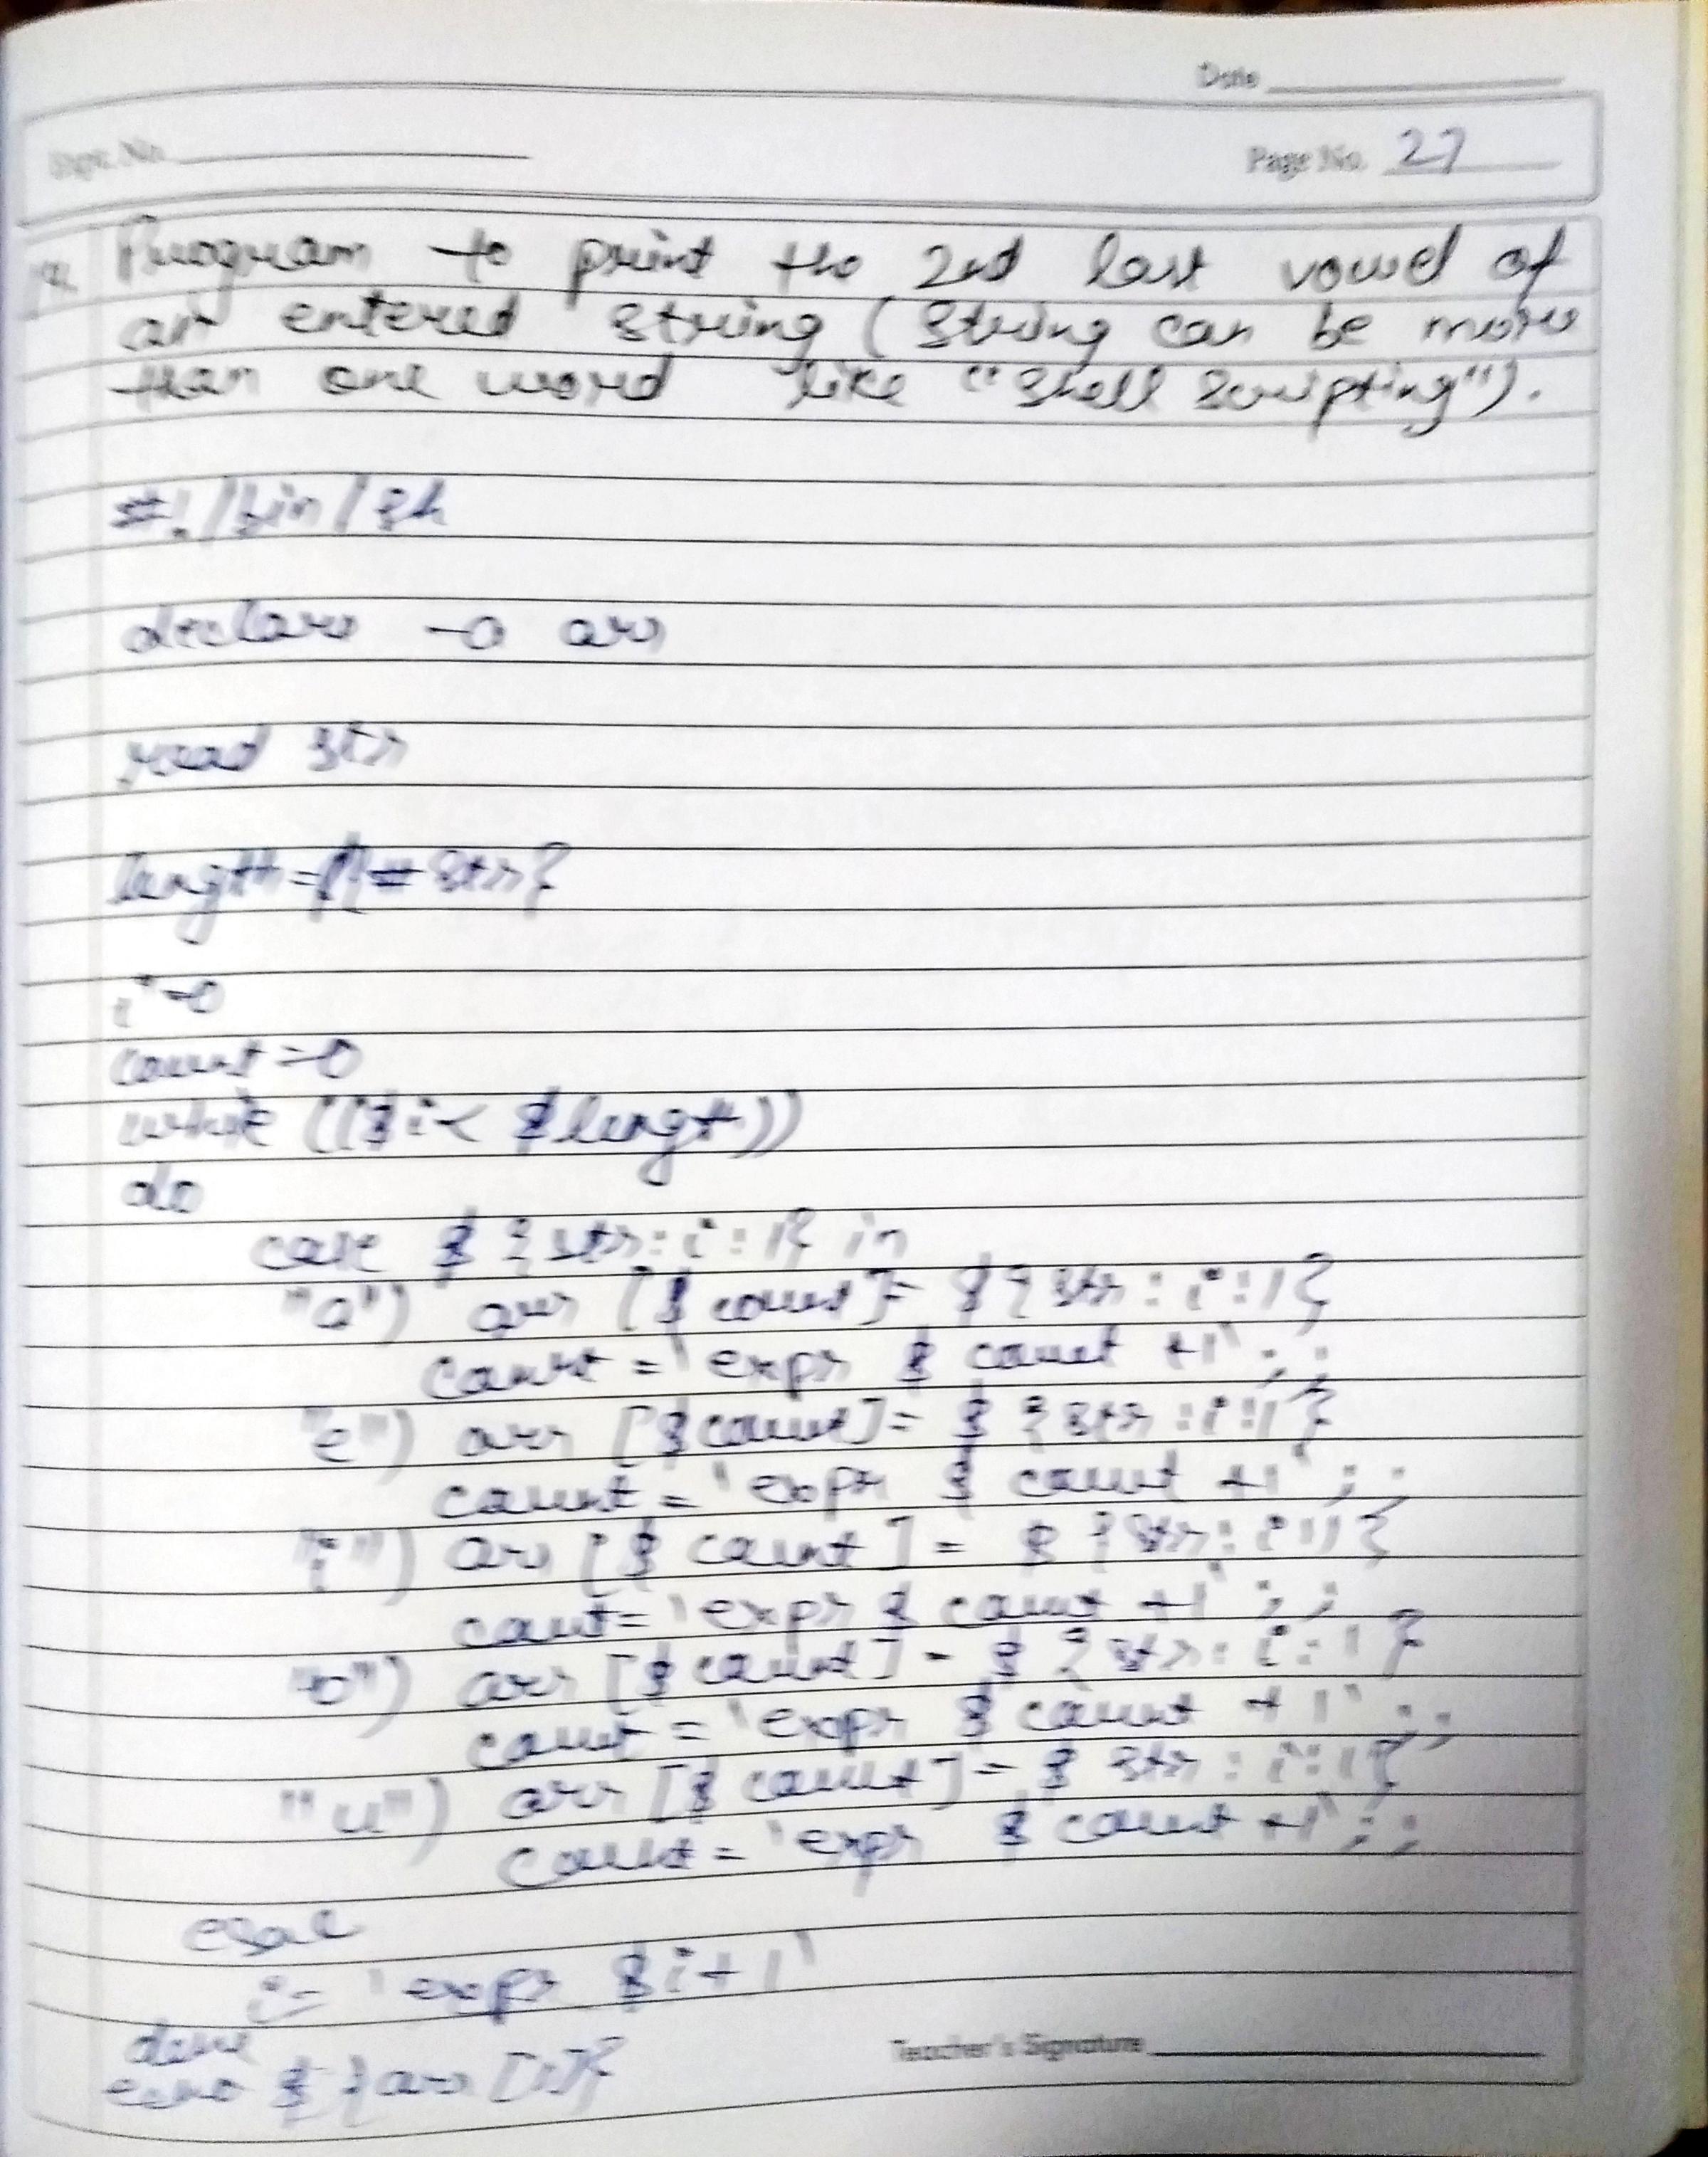 Date
Expt. No.
Page No. 27
Program to print the 2nd last vowel of
an entered string (String can be more
than one word like "Shell Scripting").
#!/bin/sh
declare -a arr
read str
length=${#str}
i=0
count=0
while (($i< $length))
do
case ${str:i:1} in
"a") arr [$count]= ${str:i:1}
count = `expr $ count +1` ;;
"e") arr [$count]= ${str:i:1}
count = `expr $ count +1` ;;
"i") arr [$ count] = ${str:i:1}
count= `expr $ count +1` ;;
"o") arr [$ count] = ${str:i:1}
count = `expr $ count +1` ;;
"u") arr [$ count] = $ str:i:1}
count = `expr $ count +1` ;;
esac
i= `expr $i+1`
done
Teacher's Signature
echo ${arr